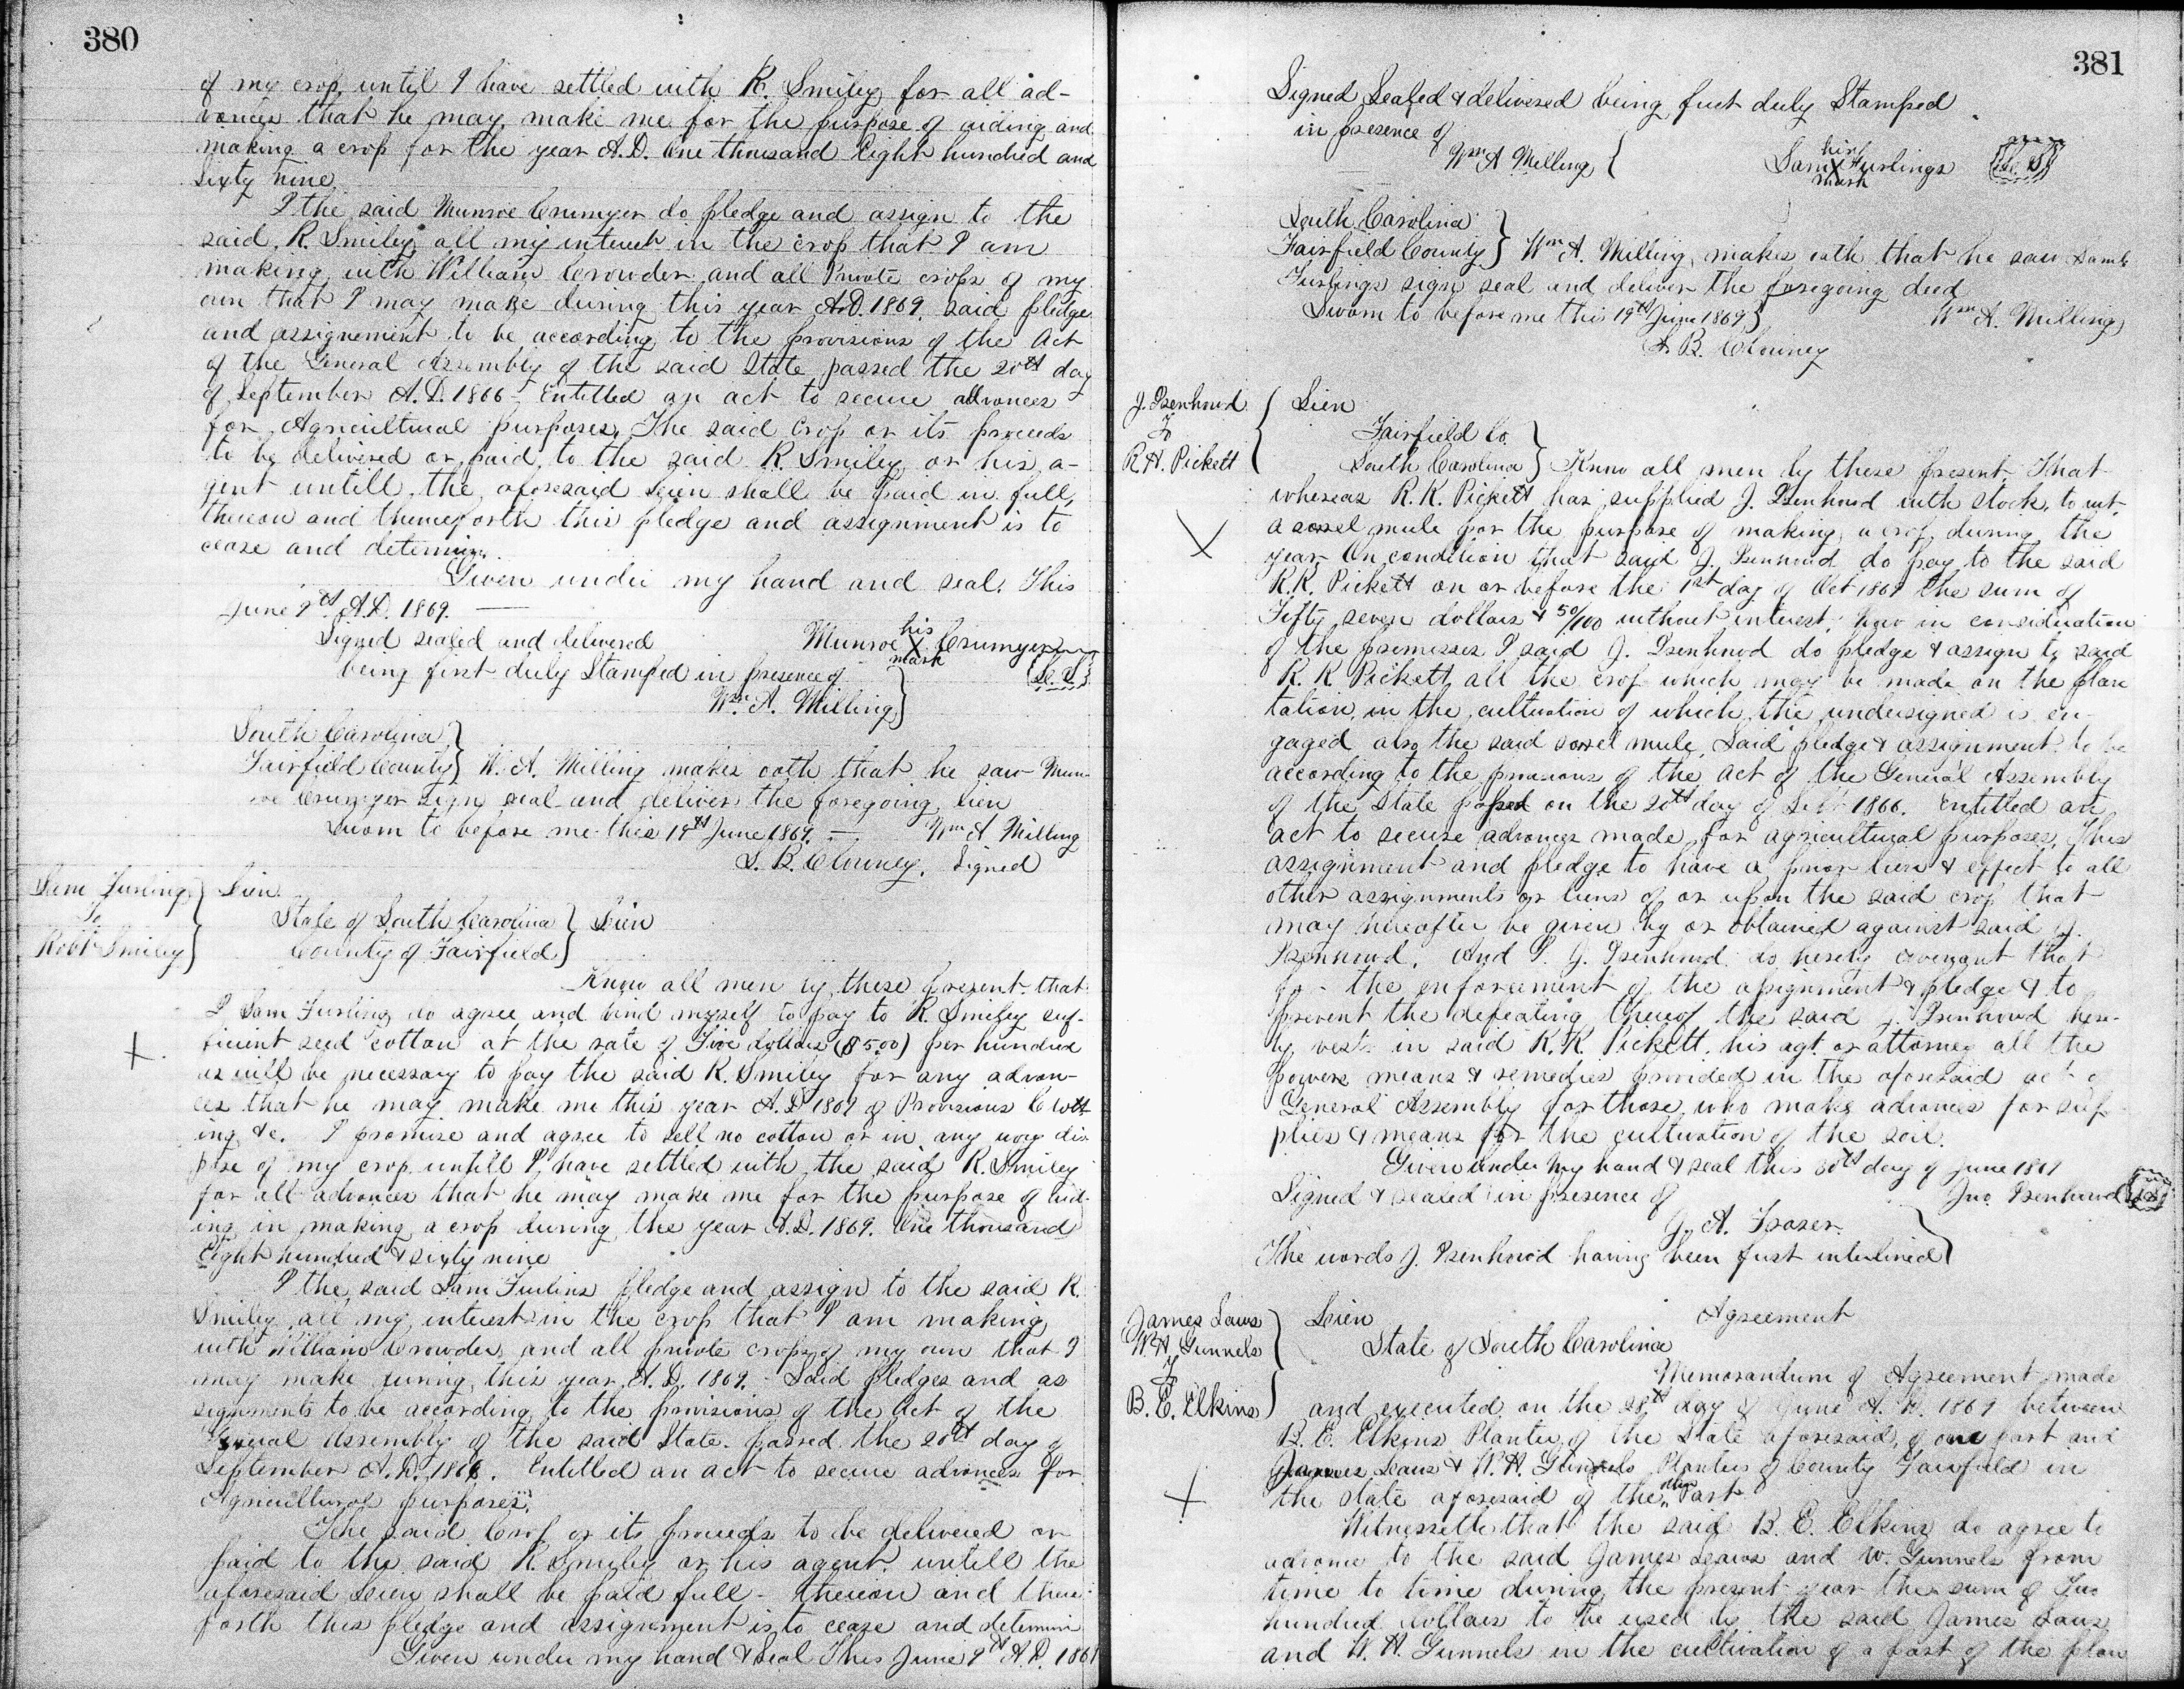 380
of my crop until I have settled with R. Smiley for all ad-
vances that he may make me for the purpose of aiding and
making a crop for the year A.D. One thousand Eight hundred and
Sixty nine
I the said Munroe Crumyer do pledge and assign to the
said R. Smiley all my interest in the crop that I am
making with William Crowder and all Private crops of my
own that I may make during this year A.D. 1869. Said pledge
and assignement to be according to the provisions of the Act
of the General Assembly of the said State passed the 20th day
of September A.D. 1866 - Entitled an act to secure advances
for Agricultural purposes. The said Crop or its proceeds
to be delivered or paid to the said R. Smiley or his a-
gent untill the aforesaid Lien shall be paid in full,
thereon and thenceforth this pledge and assignment is to
cease and determin.
Given under my hand and seal. This
June 9th A.D. 1869.
Signed sealed and delivered
Munroe his X mark Crumyer
being first duly Stamped in presence of
(L.S.)
Wm. A. Milling
South Carolina
Fairfield County W. A. Milling makes oath that he saw Mun-
roe Crumyer sign seal and deliver the foregoing Lien
Sworn to before me this 19th June 1869. - Wm A Milling
S. B. Clowney. Signed
Sam Furling
To
Robt Smiley
Lien
State of South Carolina Lien
County of Fairfield
Know all men by these present that
I Sam Furling do agree and bind myself to pay to R. Smiley suf-
ficient seed cotton at the rate of Five dollars ($5.00) per hundred
as will be necessary to pay the said R. Smiley for any advan-
ces that he may make me this year A.D 1869 of Provisions Cloth
ing &c. I promise and agree to sell no cotton or in any way dis
pose of my crop untill I have settled with the said R. Smiley
for all advances that he may make me for the purpose of aid-
ing in making a crop during the year A.D. 1869. One thousand
Eight hundred & sixty nine
I the said Sam Furlins pledge and assign to the said R.
Smiley all my interest in the crop that I am making
with William Crowder and all private crops of my own that I
may make during this year A.D. 1869. - Said pledges and as
signments to be according to the provisions of the Act of the
General Assembly of the said State. passed the 20th day of
September A.D. 1866. Entitled an act to secure advances for
Agricultural purposes.
The said Crop or its proceeds to be delivered or
paid to the said R. Smiley or his agent untill the
aforesaid Lien shall be paid full - thereon and thence
forth this pledge and assignment is to cease and determin
Given under my hand & Seal This June 9th A.D. 1869
381
Signed Sealed & delivered being first duly Stamped
in presence of
Wm A Milling
Sam his X mark Furlings
(L. S)
South Carolina
Fairfield County Wm A. Milling makes oath that he saw Saml
Furlings sign seal and deliver the foregoing deed
Sworn to before me this 19th June 1869 Wm A. Milling
S. B. Clowney
J. Isenhood
To
R. H. Pickett
Lien
Fairfield Co.
South Carolina Know all men by these present. That
whereas R. K. Pickett has supplied J. Isenhood with stock, to wit
a sorrel mule for the purpose of making a crop during the
year On condition that said J. Isenhood do pay to the said
R. K. Pickett on or before the 1st day of Oct 1869 the sum of
Fifty seven dollars & 50/100 without interest. Now in consideration
of the premisses I said J. Isenhood do pledge & assign to said
R. K Pickett all the crop which may be made on the plan
tation, in the cultivation of which the undersigned is en-
gaged also the said sorrel mule Said pledge & assignment to be
according to the provisions of the Act of the General Assembly
of the State passed on the 20th day of Sept 1866. Entitled an
act to secure advances made for agricultural purposes. This
assignment and pledge to have a prior lien & effect to all
other assignments or liens of or upon the said crop that
may hereafter be given by or obtained against said J.
Isenhood. And I. J. Isenhood do hereby covenant that
for the enforcement of the assignment & pledge & to
prevent the defeating thereof the said J. Isenhood here-
by vests in said R. K. Pickett. his agt. or attorney all the
powers means & remedies provided in the aforesaid act of
General Assembly for those who make advances for sup
plies & means for the cultivation of the soil.
Given under my hand & seal this 30th day of June 1869
Signed & sealed in presence of Jno. Isenhood (LS)
J. A. Frazer
The words J. Isenhood having been first interlined
James Laws
W. H. Gunnels
To
B. E. Elkins
Lien Agreement
State of South Carolina
Memorandum of Agreement made
and executed on the 28th day of June A. D. 1869 between
B. E. Elkins Planter of the State aforesaid, of one part and
James Laws & W. H. Gunnels Planters of County Fairfield in
the state aforesaid of the other Part
Witnesseth that the said B. E. Elkins do agree to
advance to the said James Laws and W. Gunnels from
time to time during the present year the sum of Two
hundred dollars to be used by the said James Laws
and W. H. Gunnels in the cultivation of a part of the plan